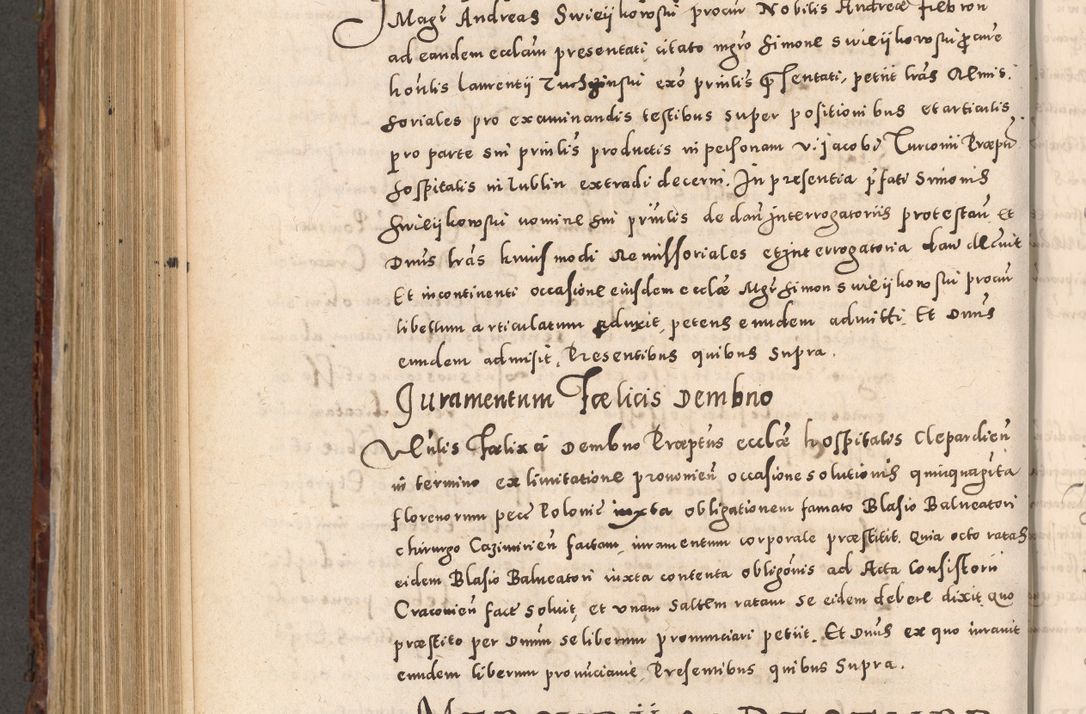 Magr Andreas Swieijkowski procur Nobilis Andreæ Febron
ad eandem ecclam presentati, citato mgro Simone Swieijkowski procure
honlis Laurentij exo prinlis præsentati, petiit lras Remis-
soriales pro examinandis testibus super positionibus et articulis
pro parte sui prinlis productis in personam v. Jacobi Turconii Præpti
hospitalis in Lublin extradi decerni. In presentia pfati Simonis
Swieijkowski nomine sui prinlis de dan Interrogatoriis protestan, et
Dnus lras huiusmodi Remissoriales et interrogatoria dan decrevit
Et incontinenti occasione eiusdem ecclæ Magr Simon Swieijkowski procur
libellum articulatum aduxit, petens eundem admitti. Et Dnus
eundem admisit, Presentibus quibus supra.
Juramentum Fœlicis Dembno
Venlis Fœlix a Dembno Præptus ecclæ hospitalis Clepardien
in termino ex limitatione provenien occasione solutionis quinquaginta
florenorum pecc Polonic iuxta obligationem famato Blasio Balneatori
chirurgo Cazimirien factam, iuramentum corporale præstitit. Quia octo ratas
eidem Blasio Balneatori iuxta contenta obligonis ad Acta Consistorii
Cracovien fact solvit, et unam saltem ratam se eidem debere dixit, quo
præstito per Dnum se liberum pronunciari petiit. Et Dnus ex quo iuravit
eundem liberum pronunciavit Presentibus quibus supra.